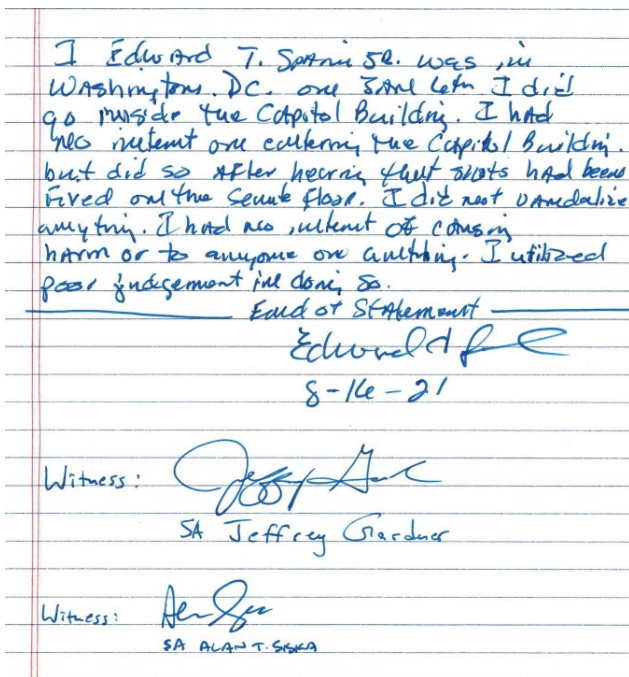 I Edward T. Spain SR. was in
Washington. DC. on Jan 6th I did
go inside the Capitol Building. I had
no intent on entering the Capitol Building.
but did so After hearing that shots had been
Fired on the Senate floor. I did not vandalize
anything. I had no intent of causing
harm or to anyone or anything. I utilized
poor judgement in doing so.
End of Statement
8-16-21
Witness:
SA Jeffrey Gardner
Witness:
SA ALAN T. SISKA